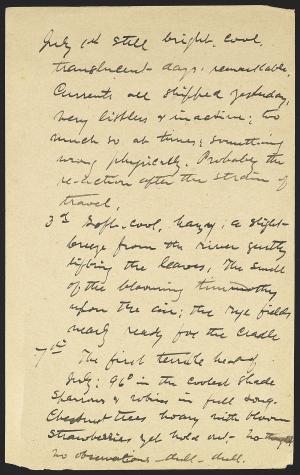 July 1st Still bright, cool,
translucent days; remarkable.
Currants all shipped yesterday,
very listless & inactive; too
much so at times; something
wrong physically. Probably the
re-action after the strain of
travel.
3d Soft, cool, hazy; a slight
breeze from the river gently
sifting the leaves. The smell
of the blooming timothy
upon the air; the rye fields
nearly ready for the cradle
7th The first terrible heat of
July; 96° in the coolest shade
Sparrows & robins in full song.
Chestnut trees hoary with bloom
Strawberries yet hold out - No thoughts
no observations - dull - dull.